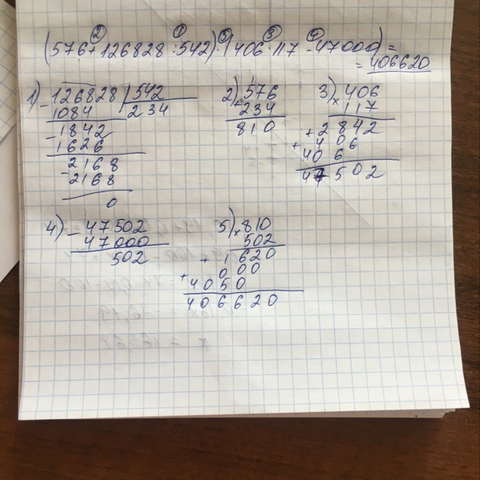 ② ① ⑤ ③ ④
(576+126828:542)·(406·117-47000)=
=406620
1) 126828 | 542
1084 | 234
-1842
1626
-2168
-2168
0
2) 576
+234
810
3) ×406
117
+2842
+406
406
47502
4) -47502
47000
502
5) ×810
502
+1620
+000
4050
406620